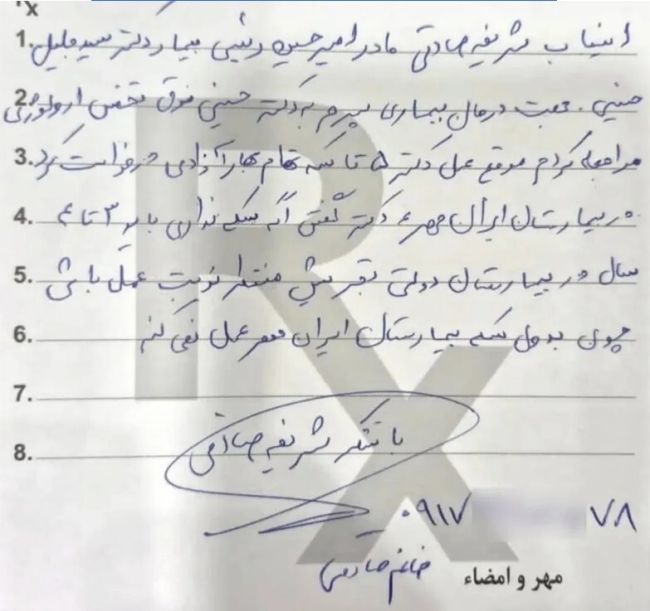 Rx
1. اینجانب شریفه صادقی مادر امیرحسین رئیسی بیمار دکتر سید جلیل
2. حسینی. جهت درمان بیماری پسرم به دکتر حسینی فوق تخصص ارولوژی
3. مراجعه کردم موقع عمل دکتر ۵ تا سکه تمام بهار آزادی درخواست کرد.
4. در بیمارستان ایران مهر، دکتر گفتن اگه سکه ندای باید ۳ تا ۴
5. سال در بیمارستان دولتی تجریش منتظر نوبت عمل باشی
6. چون بدون سکه بیمارستان ایران مهر عمل نمی کنم
7.
8. با تشکر شریفه صادقی
۰۹۱۷ ۷۸
خانم صادقی
مهر و امضاء